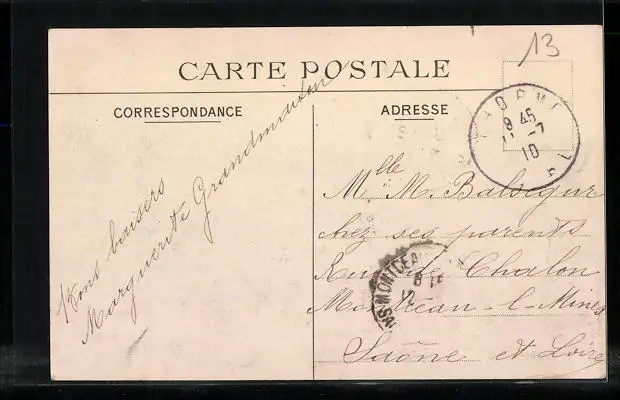 13
CARTE POSTALE
CORRESPONDANCE
ADRESSE
8 45
11 - 7
10
Bons baisers
Marguerite Grandmouton
Mlle M. Balsegur
chez ses parents
Rue de Chalon
Montceau-l-Mines
Saône et Loire
MONTCEAU
8
12